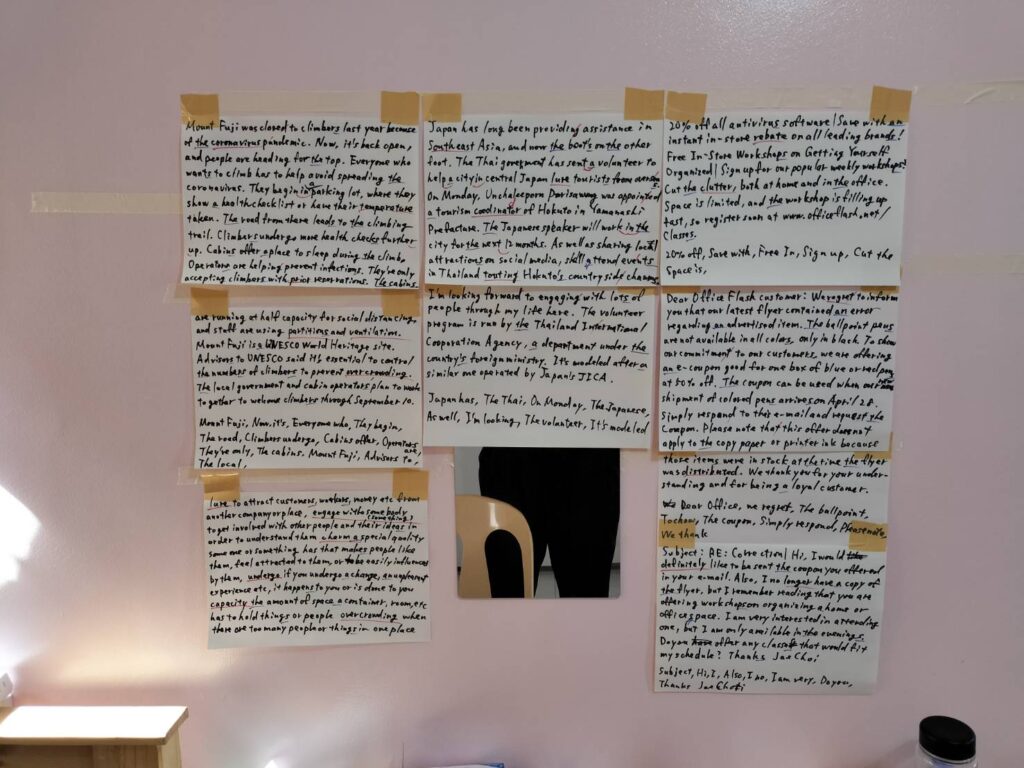 Mount Fuji was closed to climbers last year because
of the coronavirus pandemic. Now, it's back open,
and people are heading for the top. Everyone who
wants to climb has to help avoid spreading the
coronavirus. They begin in a parking lot, where they
show a health checklist or have their temperature
taken. The road from there leads to the climbing
trail. Climbers undergo more health checks further
up. Cabins offer a place to sleep during the climb.
Operators are helping prevent infections. They're only
accepting climbers with prior reservations. The cabins
are running at half capacity for social distancing,
and staff are using partitions and ventilation.
Mount Fuji is a UNESCO World Heritage site.
Advisors to UNESCO said it's essential to control
the numbers of climbers to prevent overcrowding.
The local government and cabin operators plan to
together to welcome climbers through September 10.
Mount Fuji, Now, it's, Everyone who, They begin,
The road, Climbers undergo, Cabins offer, Operators are,
They're only, The cabins. Mount Fuji, Advisors to,
The local,
lure to attract customers, workers, money etc from
another company or place, engage with some body
(something)
to get involved with other people and their ideas in
order to understand them charm a special quality
some one or something has that makes people like
them, feel attracted to them, or to be easily influenced
by them, undergo if you undergo a change, an unpleasant
experience etc, it happens to you or is done to you
capacity the amount of space a container, room, etc
has to hold things or people overcrowding when
there are too many people or things in one place
Japan has long been providing assistance in
Southeast Asia, and now the boots on the other
foot. The Thai goverment has sent a volunteer to
help a city in central Japan lure tourists from overseas
On Monday, Unchaleeporn was appointed
a tourism coodinator of Hokuto in Yamanashi
Prefacture. The Japanese speaker will work in the
city for the next 12 months. As well as sharing local
attractions on social media, she'll attend events
in Thailand touting Hokuto's country side charms
I'm looking forward to engaging with lots of
people through my life here. The volunteer
program is run by the Thailand International
Corporation Agency, a department under the
country's foreign ministry. It's modeled after a
similar one operated by Japan's JICA.
Japan has, The Thai, On Monday, The Japanese,
As well, I'm looking, The volunteer, It's modeled
20% off all antivirus software | Save with an
instant in-store rebate on all leading brands!
Free In-Store Workshops on Getting Yourself
Organized | Sign up for our popular weekly workshops!
Cut the clutter, both at home and in the office.
Space is limited, and the workshop is filling up
fast, so register soon at www.officeflash.net/
Classes.
20% off, Save with, Free In, Sign up, Cut the
Space is,
Dear Office Flash customer: We regret to inform
you that our latest flyer contained an error
regarding an advertised item. The ballpoint pens
are not available in all colors, only in black. To show
our commitment to our customers, we are offering
an e-coupon good for one box of blue or red pens
at 50% off. The coupon can be used when our new
shipment of colored pens arrives on April 28.
Simply respond to this e-mail and request the
Coupon. Please note that this offer does not
apply to the copy paper or printer ink because
those items were in stock at the time the flyer
was distributed. We thank you for your under-
standing and for being a loyal customer.
Dear Office, we regret, The ballpoint,
To show, The coupon, Simply respond, Please note,
We thank
Subject: RE: Correction | Hi, I would
definitely like to be sent the coupon you offered
in your e-mail. Also, I no longer have a copy of
the flyer, but I remember reading that you are
offering workshops on organizing a home or
office space. I am very interested in attending
one, but I am only available in the evenings.
Do you offer any classes that would fit
my schedule? Thanks Jae Choi
Subject, Hi, I, Also, I no, I am very, Do you,
Thanks Jae Choi